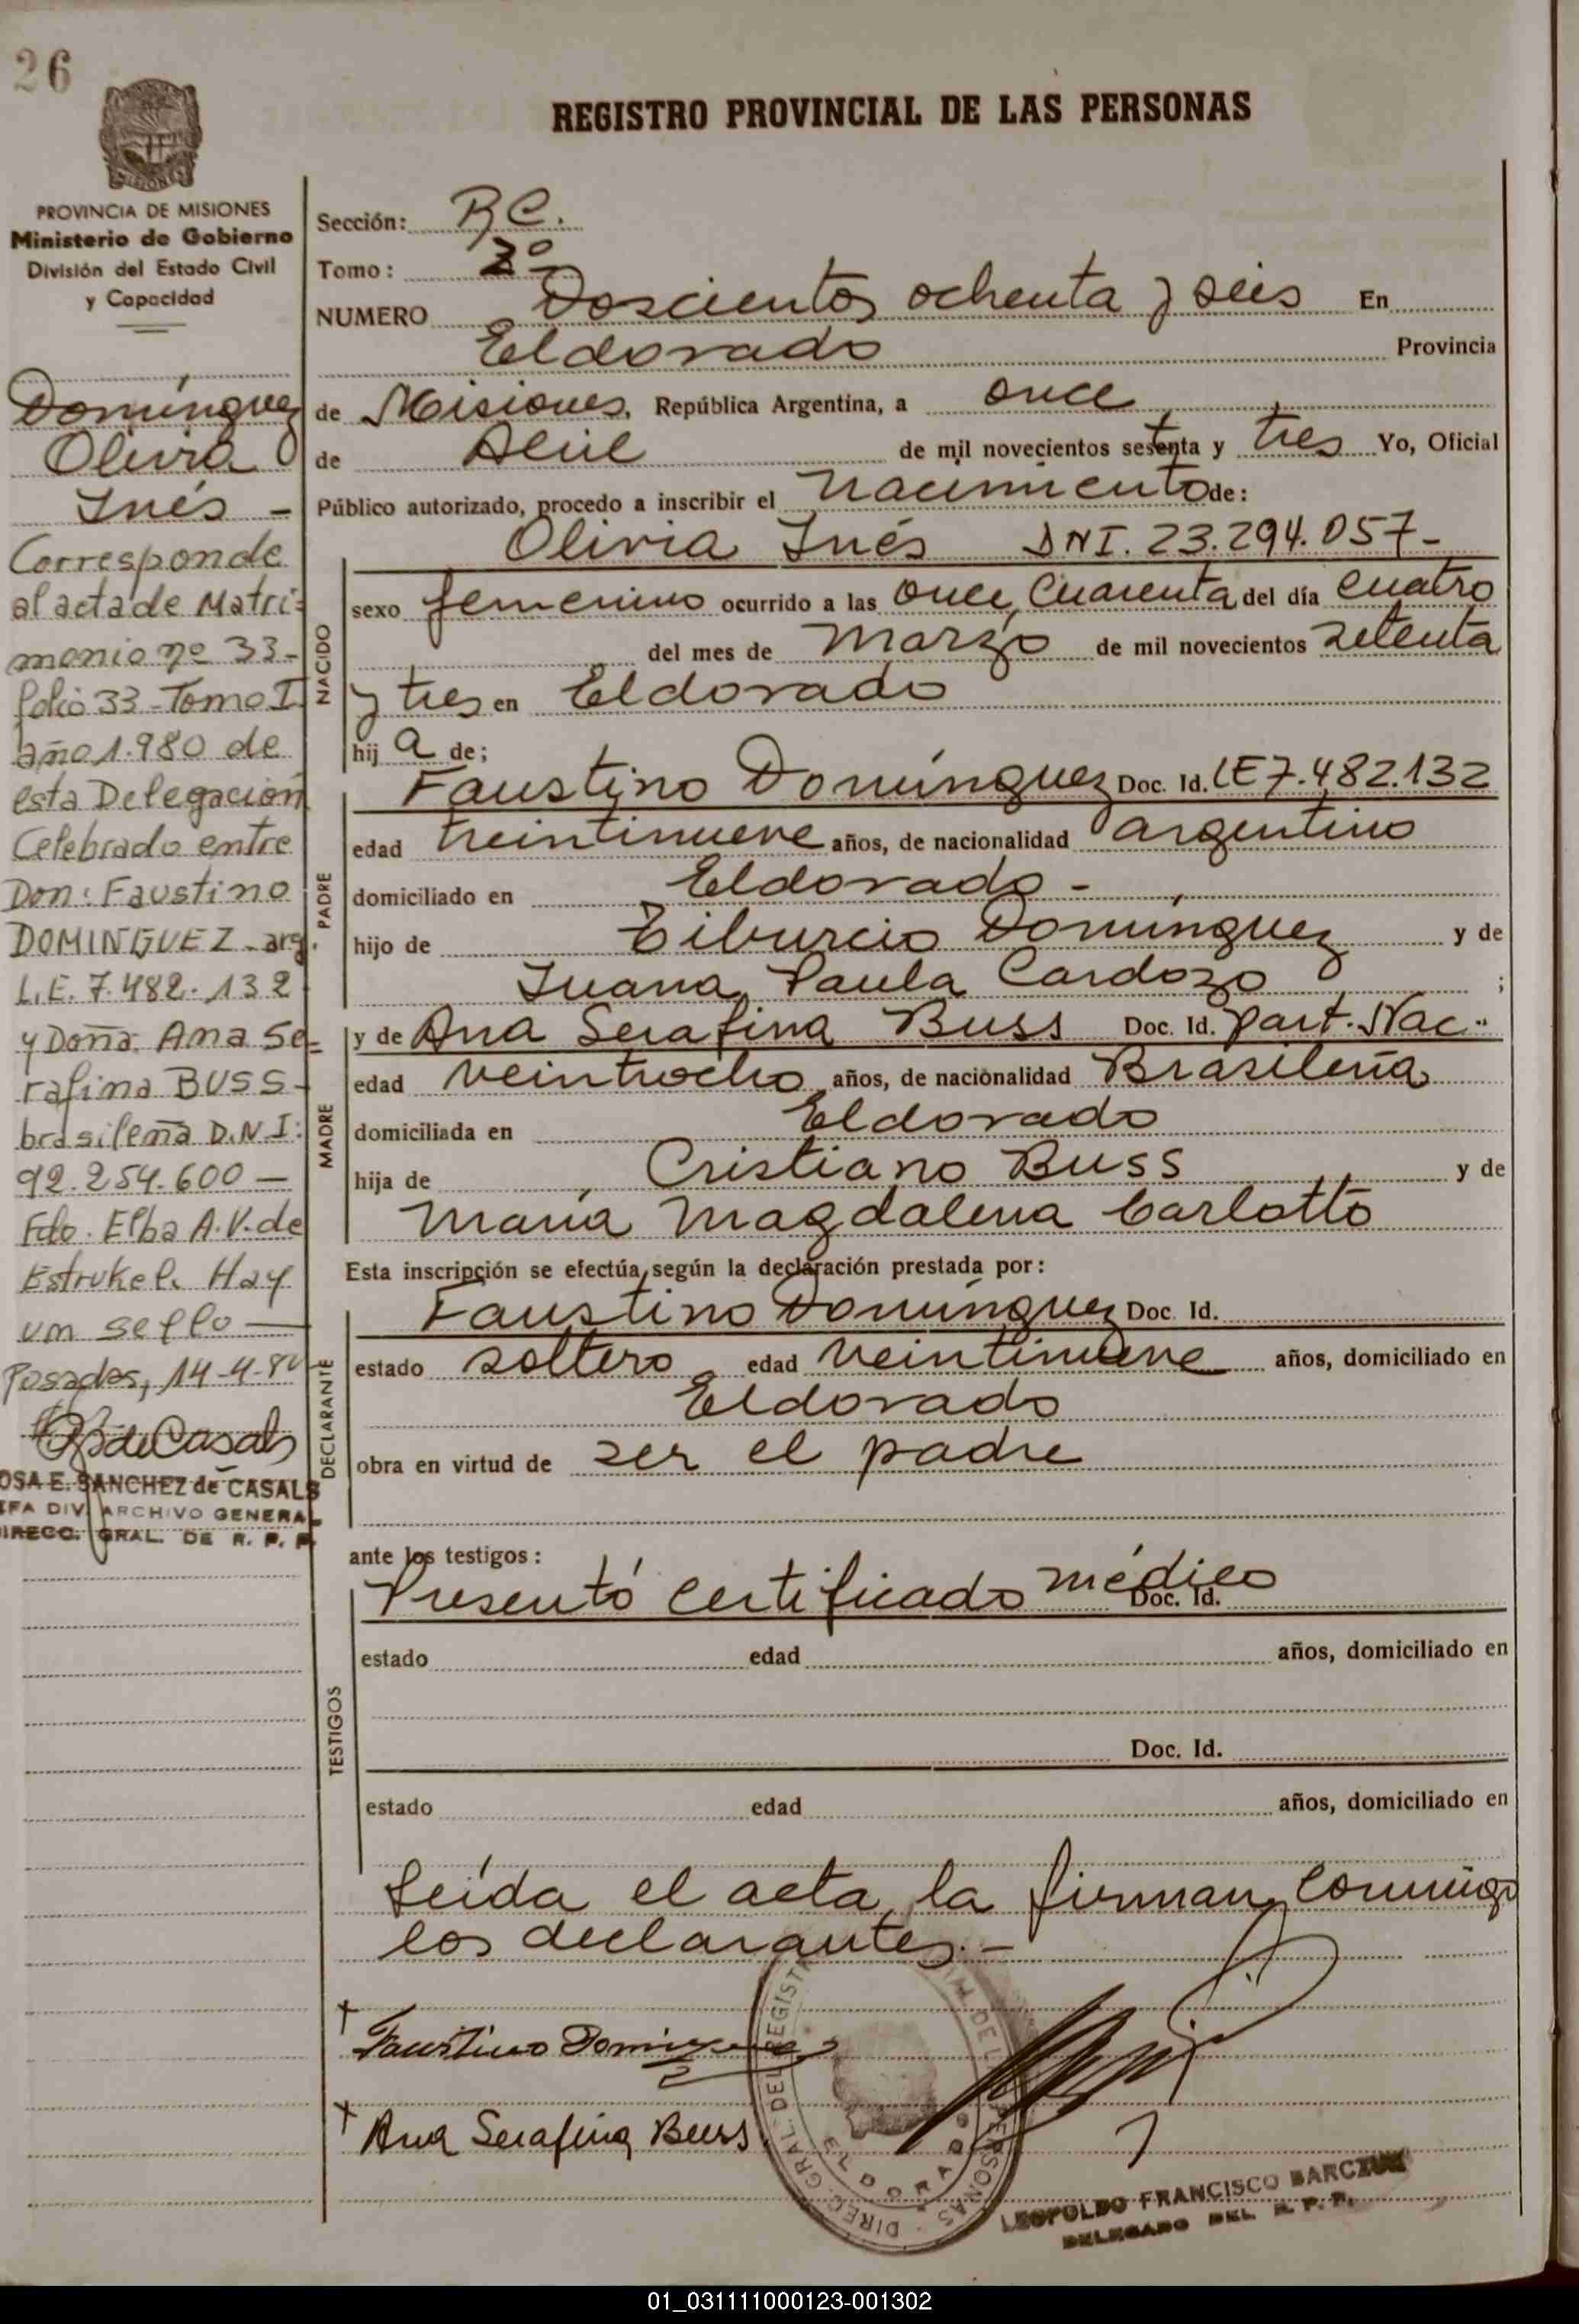 26
REGISTRO PROVINCIAL DE LAS PERSONAS
PROVINCIA DE MISIONES
Ministerio de Gobierno
División del Estado Civil
y Capacidad
Domínguez
Olivia
Inés -
Corresponde
al acta de Matri=
monio nº 33-
folio 33 - Tomo I
año 1.980 de
esta Delegación
Celebrado entre
Don: Faustino
DOMINGUEZ - arg.
L.E. 7.482.132
y Doña: Ana Se=
rafina BUSS-
brasileña D.N.I:
92.254.600 —
Fdo. Elba A.V. de
Estrukel. Hay
un sello —
Posadas, 14-4-8
de Casals
OSA E. SANCHEZ de CASALS
EFA DIV. ARCHIVO GENERAL
DIRECC. GRAL. DE R. P. P.
Sección: RC.
Tomo: 2º
NUMERO Doscientos ochenta y seis En
Eldorado Provincia
de Misiones, República Argentina, a once
de Abril de mil novecientos setenta y tres Yo, Oficial
Público autorizado, procedo a inscribir el nacimiento de:
NACIDO
Olivia Inés DNI. 23.294.057-
sexo femenino ocurrido a las once, cuarenta del día cuatro
del mes de marzo de mil novecientos setenta
y tres en Eldorado
hij a de;
PADRE
Faustino Domínguez Doc. Id. LE 7.482.132
edad treintinueve años, de nacionalidad argentino
domiciliado en Eldorado -
hijo de Tiburcio Domínguez y de
Juana Paula Cardozo ;
MADRE
y de Ana Serafina Buss Doc. Id. Part. Nac.-
edad veintiocho años, de nacionalidad Brasileña
domiciliada en Eldorado
hija de Cristiano Buss y de
María Magdalena Carlotto
Esta inscripción se efectúa, según la declaración prestada por:
DECLARANTE
Faustino Domínguez Doc. Id.
estado soltero edad veintinueve años, domiciliado en
Eldorado
obra en virtud de ser el padre
ante los testigos:
TESTIGOS
Presentó certificado médico Doc. Id.
estado edad años, domiciliado en
Doc. Id.
estado edad años, domiciliado en
Leída el acta, la firman conmigo
los declarantes.-
Faustino Dominguez
Ana Serafina Buss
DIREC. GRAL. DEL REGIST DE L PERSONAS
ELDORADO
LEOPOLDO FRANCISCO BARCZUK
DELEGADO DEL R. P. P.
01_031111000123-001302